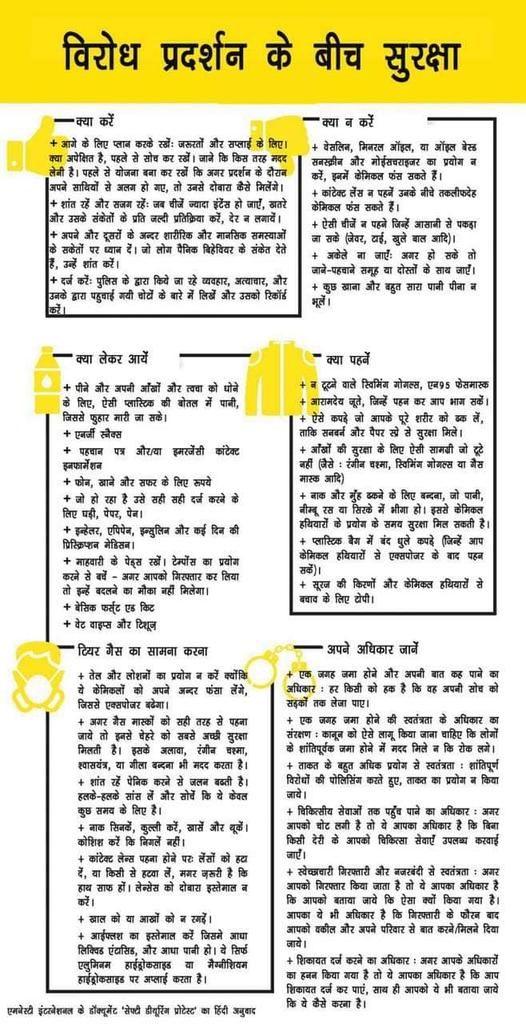 विरोध प्रदर्शन के बीच सुरक्षा
क्या करें
+ आगे के लिए प्लान करके रखें: जरूरतों और सप्लाई के लिए।
क्या अपेक्षित है, पहले से सोच कर रखें। जाने कि किस तरह मदद
लेनी है। पहले से योजना बना कर रखें कि अगर प्रदर्शन के दौरान
अपने साथियों से अलग हो गए, तो उनसे दोबारा कैसे मिलेंगे।
+ शांत रहें और सजग रहें: जब चीजें ज्यादा इंटेंस हो जाएँ, खतरे
और उसके संकेतों के प्रति जल्दी प्रतिक्रिया करें, देर न लगायें।
+ अपने और दूसरों के अन्दर शारीरिक और मानसिक समस्याओं
के सकेतों पर ध्यान दें। जो लोग पैनिक बिहेवियर के संकेत देते
हैं, उन्हें शांत करें।
+ दर्ज करें: पुलिस के द्वारा किये जा रहे व्यवहार, अत्याचार, और
उनके द्वारा पहुचाई गयी चोटों के बारे में लिखें और उसको रिकॉर्ड
करें।
क्या न करें
+ वेसलिन, मिनरल ऑइल, या ऑइल बेस्ड
सनस्क्रीन और मोईसचराइजर का प्रयोग न
करें, इनमें केमिकल फंस सकते हैं।
+ कांटेक्ट लेंस न पहनें उनके नीचे तकलीफदेह
केमिकल फंस सकते हैं।
+ ऐसी चीजें न पहने जिन्हें आसानी से पकड़ा
जा सके (जेवर, टाई, खुले बाल आदि)।
+ अकेले ना जाएँ: अगर हो सके तो
जाने-पहचाने समूह या दोस्तों के साथ जाएँ।
+ कुछ खाना और बहुत सारा पानी पीना न
भूलें।
क्या लेकर आयें
+ पीने और अपनी आँखों और त्वचा को धोने
के लिए, ऐसी प्लास्टिक की बोतल में पानी,
जिससे फुहार मारी जा सके।
+ एनर्जी स्नैक्स
+ पहचान पत्र और/या इमरजेंसी कांटेक्ट
इनफार्मेशन
+ फोन, खाने और सफर के लिए रूपये
+ जो हो रहा है उसे सही सही दर्ज करने के
लिए घड़ी, पेपर, पेन।
+ इन्हेलर, एपिपेन, इन्सुलिन और कई दिन की
प्रिस्क्रिप्शन मेडिसन।
+ माहवारी के पेड्स रखें। टेम्पोंस का प्रयोग
करने से बचें - अगर आपको गिरफ्तार कर लिया
तो इन्हें बदलने का मौका नहीं मिलेगा।
+ बेसिक फर्स्ट एड किट
+ वेट वाइप्स और टिशूज़
क्या पहनें
+ न टूटने वाले स्विमिंग गोगल्स, एन95 फेसमास्क
+ आरामदेय जूते, जिन्हें पहन कर आप भाग सकें।
+ ऐसे कपड़े जो आपके पूरे शरीर को ढक लें,
ताकि सनबर्न और पैपर स्प्रे से सुरक्षा मिले।
+ आँखों की सुरक्षा के लिए ऐसी सामग्री जो टूटे
नहीं (जैसे : रंगीन चश्मा, स्विमिंग गोगल्स या गैस
मास्क आदि)
+ नाक और मुँह ढकने के लिए बन्दना, जो पानी,
नीम्बू रस या सिरके में भीगा हो। इससे केमिकल
हथियारों के प्रयोग के समय सुरक्षा मिल सकती है।
+ प्लास्टिक बैग में बंद धुले कपड़े (जिन्हें आप
केमिकल हथियारों से एक्सपोजर के बाद पहन
सकें)।
+ सूरज की किरणों और केमिकल हथियारों से
बचाव के लिए टोपी।
टियर गैस का सामना करना
+ तेल और लोशनों का प्रयोग न करें क्योंकि
ये केमिकलों को अपने अन्दर फंसा लेंगे,
जिससे एक्सपोजर बढेगा।
+ अगर गैस मास्कों को सही तरह से पहना
जाये तो इनसे चेहरे को सबसे अच्छी सुरक्षा
मिलती है। इसके अलावा, रंगीन चश्मा,
श्वासयंत्र, या गीला बन्दना भी मदद करता है।
+ शांत रहें पैनिक करने से जलन बढती है।
हलके-हलके सांस लें और सोचें कि ये केवल
कुछ समय के लिए है।
+ नाक सिनकें, कुल्ली करें, खासें और थूकें।
कोशिश करें कि निगलें नहीं।
+ कांटेक्ट लेन्स पहना होने परः लेंसों को हटा
दें, या किसी से हटवा लें, मगर ज़रूरी है कि
हाथ साफ हों। लेन्सेस को दोबारा इस्तेमाल न
करें।
+ खाल को या आखों को न रगड़ें।
+ आईफ्लश का इस्तेमाल करें जिसमे आधा
लिक्विड एंटासिड, और आधा पानी हो। ये सिर्फ
एलुमिनम हाईड्रोकसाइड या मैग्नीशियम
हाईड्रोकसाइड पर अप्लाई करता है।
अपने अधिकार जानें
+ एक जगह जमा होने और अपनी बात कह पाने का
अधिकार : हर किसी को हक है कि वह अपनी सोच को
सड़कों तक लेजा पाए।
+ एक जगह जमा होने की स्वतंत्रता के अधिकार का
संरक्षण : कानून को ऐसे लागू किया जाना चाहिए कि लोगों
के शांतिपूर्वक जमा होने में मदद मिले न कि रोक लगे।
+ ताकत के बहुत अधिक प्रयोग से स्वतंत्रता : शांतिपूर्ण
विरोधों की पोलिसिंग करते हुए, ताकत का प्रयोग न किया
जाये।
+ चिकित्सीय सेवाओं तक पहुँच पाने का अधिकार : अगर
आपको चोट लगी है तो ये आपका अधिकार है कि बिना
किसी देरी के आपको चिकित्सा सेवाएँ उपलब्ध करवाई
जाएँ।
+ स्वेच्छाचारी गिरफ्तारी और नजरबंदी से स्वतंत्रता : अगर
आपको गिरफ्तार किया जाता है तो ये आपका अधिकार है
कि आपको बताया जाये कि ऐसा क्यों किया गया है।
आपका ये भी अधिकार है कि गिरफ्तारी के फौरन बाद
आपको वकील और अपने परिवार से बात करने/मिलने दिया
जाये।
+ शिकायत दर्ज करने का अधिकार : अगर आपके अधिकारों
का हनन किया गया है तो ये आपका अधिकार है कि आप
शिकायत दर्ज कर पाएं, साथ ही आपको ये भी बताया जाये
कि ये कैसे करना है।
एमनेस्टी इंटरनेशनल के डॉक्यूमेंट 'सेफ्टी डीयूरिंग प्रोटेस्ट' का हिंदी अनुवाद